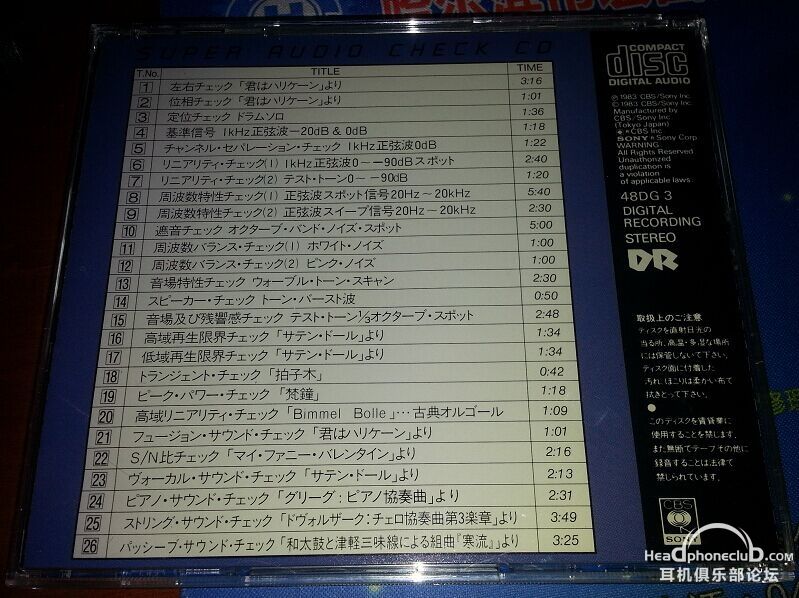 SUPER AUDIO CHECK CD
T.No. TITLE TIME
1 左右チェック「君はハリケーン」より 3:16
2 位相チェック「君はハリケーン」より 1:01
3 定位チェック ドラムソロ 1:36
4 基準信号 1kHz正弦波−20dB & 0dB 1:18
5 チャンネル・セパレーション・チェック 1kHz正弦波0dB 1:22
6 リニアリティ・チェック(1) 1kHz正弦波0〜−90dBスポット 2:40
7 リニアリティ・チェック(2) テスト・トーン0〜−90dB 1:20
8 周波数特性チェック(1) 正弦波スポット信号20Hz〜20kHz 5:40
9 周波数特性チェック(2) 正弦波スイープ信号20Hz〜20kHz 2:30
10 遮音チェック オクターブ・バンド・ノイズ・スポット 5:00
11 周波数バランス・チェック(1) ホワイト・ノイズ 1:00
12 周波数バランス・チェック(2) ピンク・ノイズ 1:00
13 音場特性チェック ウォーブル・トーン・スキャン 2:30
14 スピーカー・チェック トーン・バースト波 0:50
15 音場及び残響感チェック テスト・トーン1/3オクターブ・スポット 2:48
16 高域再生限界チェック「サテン・ドール」より 1:34
17 低域再生限界チェック「サテン・ドール」より 1:34
18 トランジェント・チェック「拍子木」 0:42
19 ピーク・パワー・チェック「梵鐘」 1:18
20 高域リニアリティ・チェック「Bimmel Bolle」…古典オルゴール 1:09
21 フュージョン・サウンド・チェック「君はハリケーン」より 1:01
22 S/N比チェック「マイ・ファニー・バレンタイン」より 2:16
23 ヴォーカル・サウンド・チェック「サテン・ドール」より 2:13
24 ピアノ・サウンド・チェック「グリーグ:ピアノ協奏曲」より 2:31
25 ストリング・サウンド・チェック「ドヴォルザーク:チェロ協奏曲第3楽章」より 3:49
26 パッシーブ・サウンド・チェック「和太鼓と津軽三味線による組曲『寒流』」より 3:25
COMPACT
disc
DIGITAL AUDIO
℗ 1983 CBS/Sony Inc.
© 1983 CBS/Sony Inc.
Manufactured by
CBS/Sony Inc.
(Tokyo Japan)
CBS Inc.
SONY Sony Corp.
WARNING
All Rights Reserved.
Unauthorized
duplication is
a violation
of applicable laws.
48DG 3
DIGITAL
RECORDING
STEREO
DR
取扱上のご注意
ディスクを直射日光の
当る所、高温・多湿な場所
には保管しないで下さい。
ディスク面に付着した
汚れ、ほこりは柔かい布で
拭きとって下さい。
このディスクを賃貸業に
使用することを禁じます。
また無断でテープその他に
録音することは法律で
禁じられています。
CBS
SONY
Headphoneclub.com
耳机俱乐部论坛